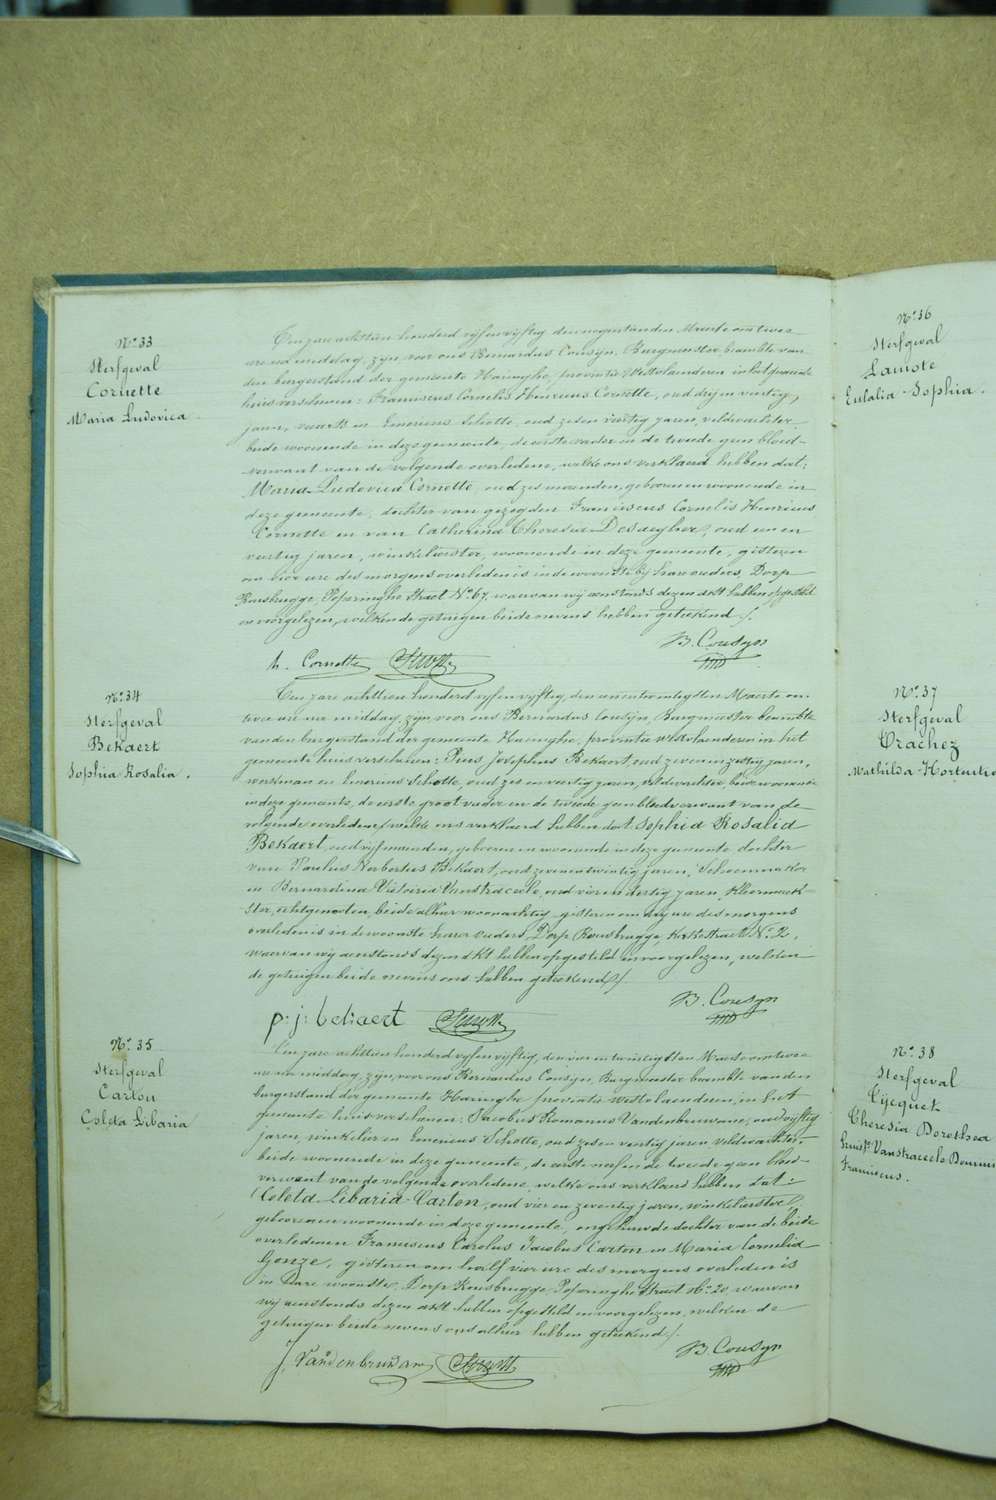 N.º 33
Sterfgeval
Cornette
Maria Ludovica.
Ten jare achttien honderd vyfenvyftig den negenstenden Maerte om twee
ure na middag, zyn voor ons Bernardus Cousyn, Burgmeester beambte van
den burgerstand der gemeente Haringhe, provintie Westvlaenderen in het gemeente
huis verschenen: Franciscus Cornelis Henricus Cornette, oud dry en veertig
jaren, en Emericus Schotte, oud zes en veertig jaren, veldwachter
beide woonende in deze gemeente, de eerste vader en de tweede geen bloed-
verwant van de volgende overledene, welke ons verklaerd hebben dat:
Maria Ludovica Cornette, oud zes maenden, geboren en woonende in
deze gemeente, dochter van gezegden Franciscus Cornelis Henricus
Cornette en van Catherina Theresia Desaegher, oud een en
veertig jaren, winkelierster, woonende in deze gemeente, gisteren
om vier ure des morgens overleden is in de woonste by hare ouders, Dorp
Rousbrugge, Poperinghe Straet N.º 67, waervan wy aenstonds dezen akt hebben opgesteld
en voorgelezen, welken de getuigen beide nevens hebben geteekend /.
B. Cousyn
h. Cornette Schotte
N.º 34
Sterfgeval
Bekaert
Sophia Rosalia.
Ten jare achttien honderd vyfenvyftig, den eenentwintigsten Maerte om
twee ure na middag, zyn voor ons Bernardus Cousyn, Burgmeester beambte
van den burgerstand der gemeente Haringhe, provintie Westvlaenderen in het
gemeente huis verschenen: Pius Josephus Bekaert, oud zevenenzestig jaren,
werkman en Emericus Schotte, oud zes en veertig jaren, veldwachter, beide woonende
in deze gemeente, de eerste groot vader en de tweede geen bloedverwant van de
volgende overledene, welke ons verklaerd hebben dat Sophia Rosalia
Bekaert, oud vyf maenden, geboren en woonende in deze gemeente dochter
van Paulus Norbertus Bekaert, oud zevenentwintig jaren, Schoenmaker
en Bernardina Victoiria Vanstraceele, oud vierendertig jaren, Kleermaek-
ster, echtgenoten, beide alhier woonachtig, gisteren om dry ure des morgens
overleden is in de woonste harer ouders, Dorp Rousbrugge Kerkstraet N.º 2,
waervan wy aenstonds dezen akt hebben opgesteld en voorgelezen, welken
de getuigen beide nevens ons hebben geteekend /.
B. Cousyn
p: j: bekaert Schotte
N.º 35
Sterfgeval
Carton
Coleta Libaria
Ten jare achttien honderd vyfenvyftig, den vier en twintigsten Maerte om twee
ure na middag, zyn, voor ons Bernardus Cousyn, Burgmeester beambte van den
burgerstand der gemeente Haringhe provintie Westvlaenderen, in het
gemeente huis verschenen: Jacobus Romanus Vandenbruwane, oud vyftig
jaren, winkelier en Emericus Schotte, oud zes en veertig jaren veldwachter
beide woonende in deze gemeente, de eerste neef en de tweede geen bloed-
verwant van de volgende overledene, welke ons verklaerd hebben dat:
Coleta Libaria Carton, oud vier en zeventig jaren, winkelierster,
geboren en woonende in deze gemeente, ongehuwde dochter van de beide
overledenen Franciscus Carolus Jacobus Carton en Maria Cornelia
Gonze, gisteren om half vier ure des morgens overleden is
in hare woonste, Dorp Rousbrugge Poperinghe Straet N.º 20, waervan
wy aenstonds dezen akt hebben opgesteld en voorgelezen, welken de
getuigen beide nevens ons alhier hebben geteekend /.
B. Cousyn
J Vandenbruwane Schotte
N.º 36
Sterfgeval
Lamote
Eulalia Sophia.
N.º 37
Sterfgeval
Trachez
Mathilda
N.º 38
Sterfgeval
Cyecquet
Theresia Dorothea
Vanstraceele
Franciscus.